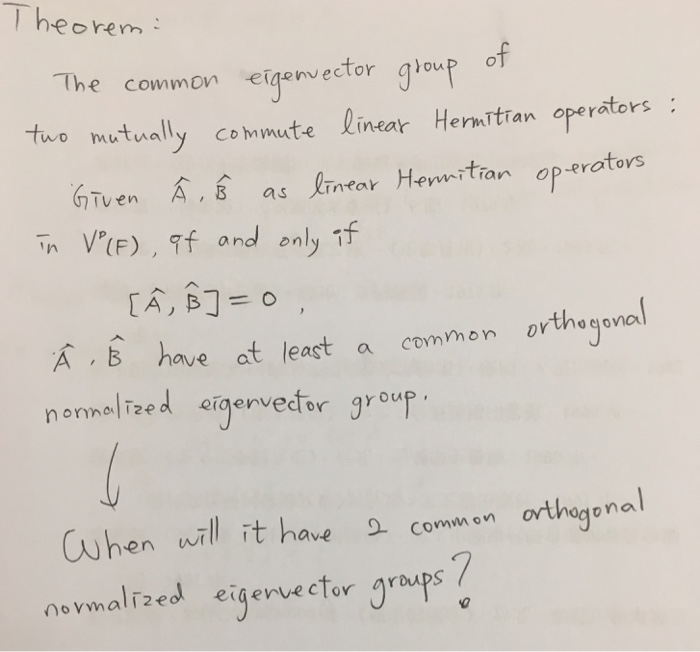 Theorem:
The common eigenvector group of
two mutually commute linear Hermitian operators:
Given Â, B̂ as linear Hermitian operators
in Vᴾ(F), if and only if
[Â, B̂] = 0,
Â, B̂ have at least a common orthogonal
normalized eigenvector group.
↓
When will it have 2 common orthogonal
normalized eigenvector groups?